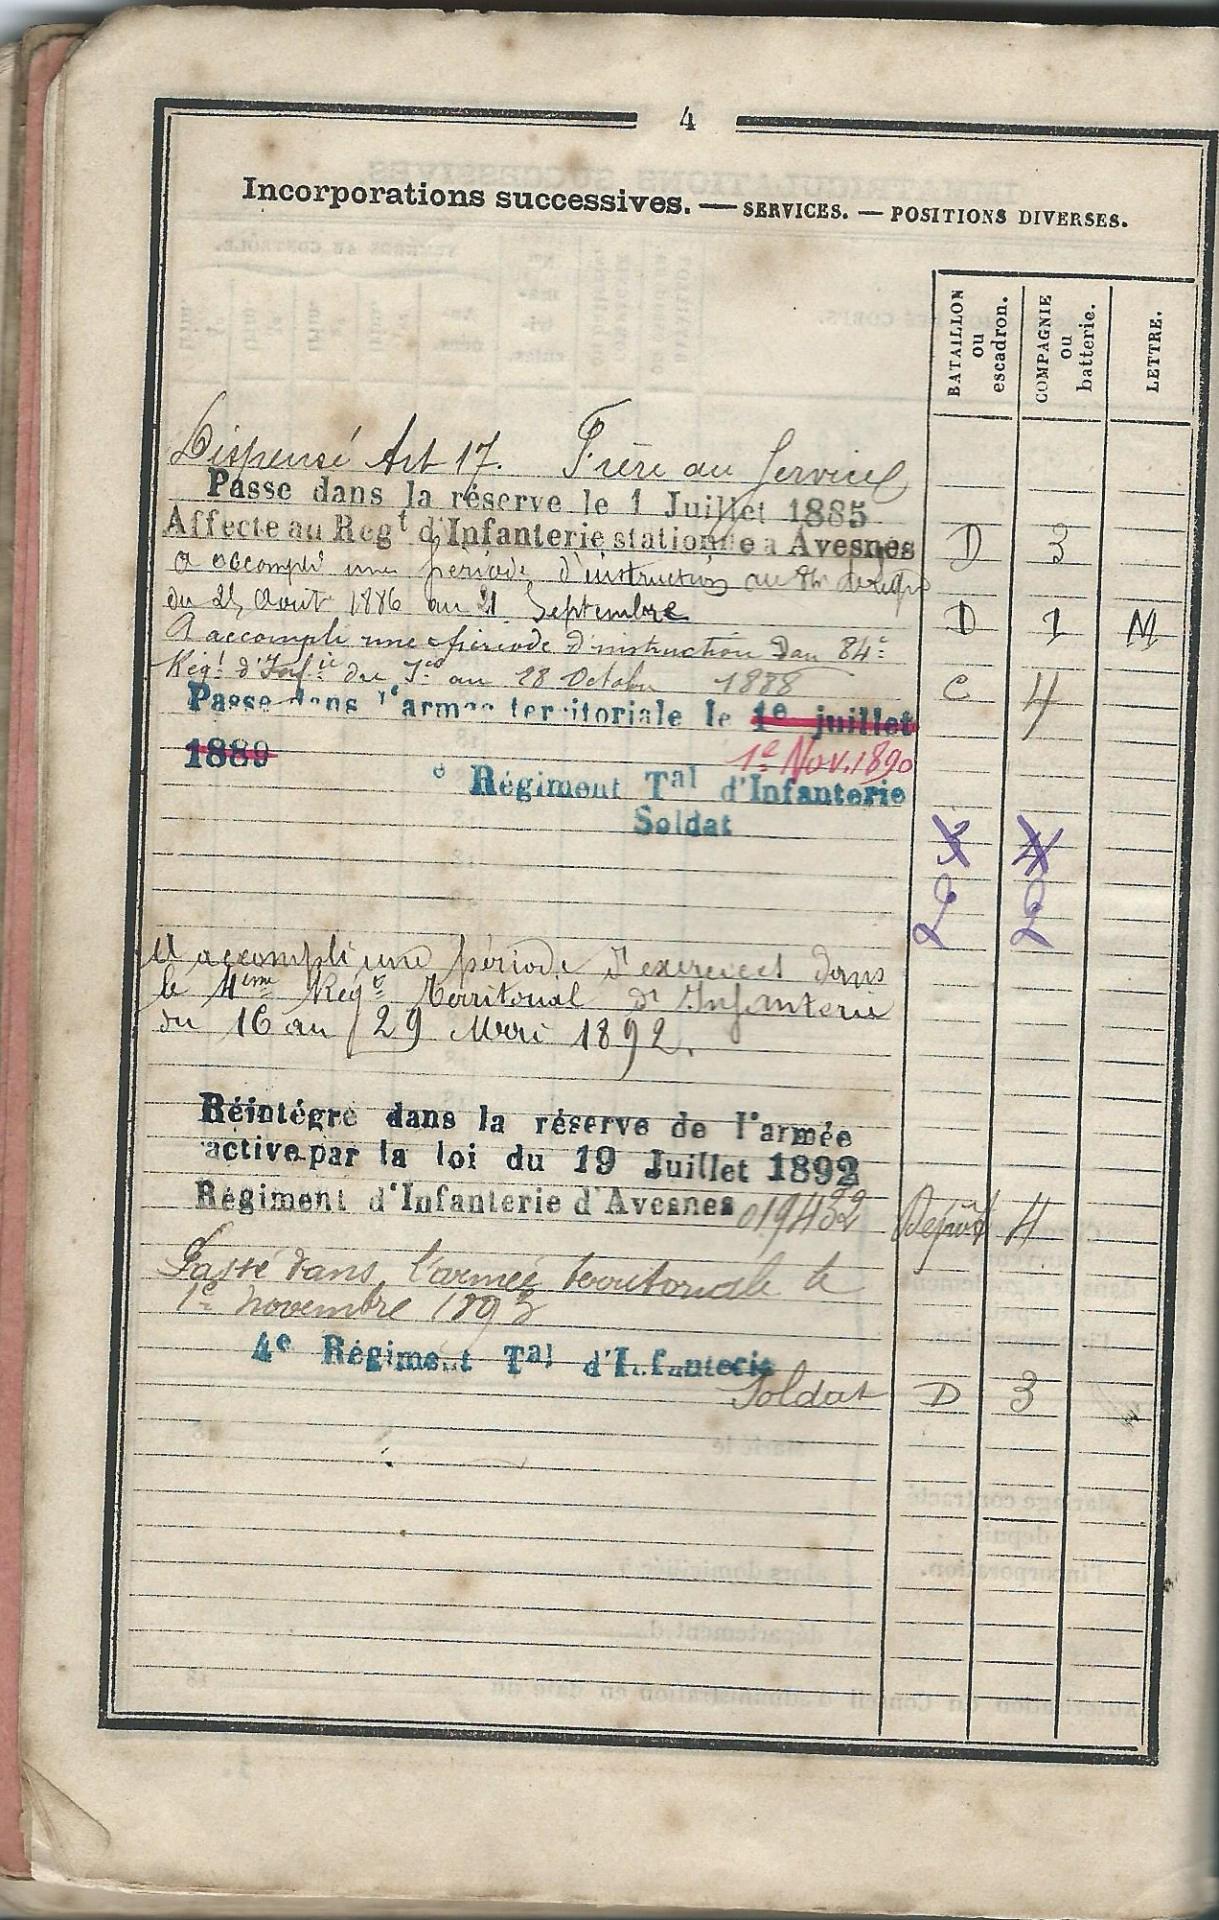 4
Incorporations successives. — SERVICES. — POSITIONS DIVERSES.
BATAILLON ou escadron.
COMPAGNIE ou batterie.
LETTRE.
Dispensé Art 17. Frère au Service
Passe dans la réserve le 1 Juillet 1885
Affecte au Regt d'Infanterie stationne a Avesnes D 3
a accompli une période d'instruction au 84e
du 25 Août 1886 au 21 Septembre D 1 M
A accompli une période d'instruction dans 84e
Régt d'Infie du 1er au 28 Octobre 1888 C 4
Passe dans l'armée territoriale le 1e juillet
1889 1e Nov. 1890
e Régiment Tal d'Infanterie
Soldat
2 2
A accompli une période d'exercices dans
le 4eme Regt Territorial d'Infanterie
du 16 au 29 Mai 1892.
Réintégré dans la réserve de l'armée
active par la loi du 19 Juillet 1892
Régiment d'Infanterie d'Avesnes 019432 Dépôt 4
Passé dans l'armée territoriale le
1er novembre 1893
4e Régiment Tal d'Infanterie
Soldat D 3